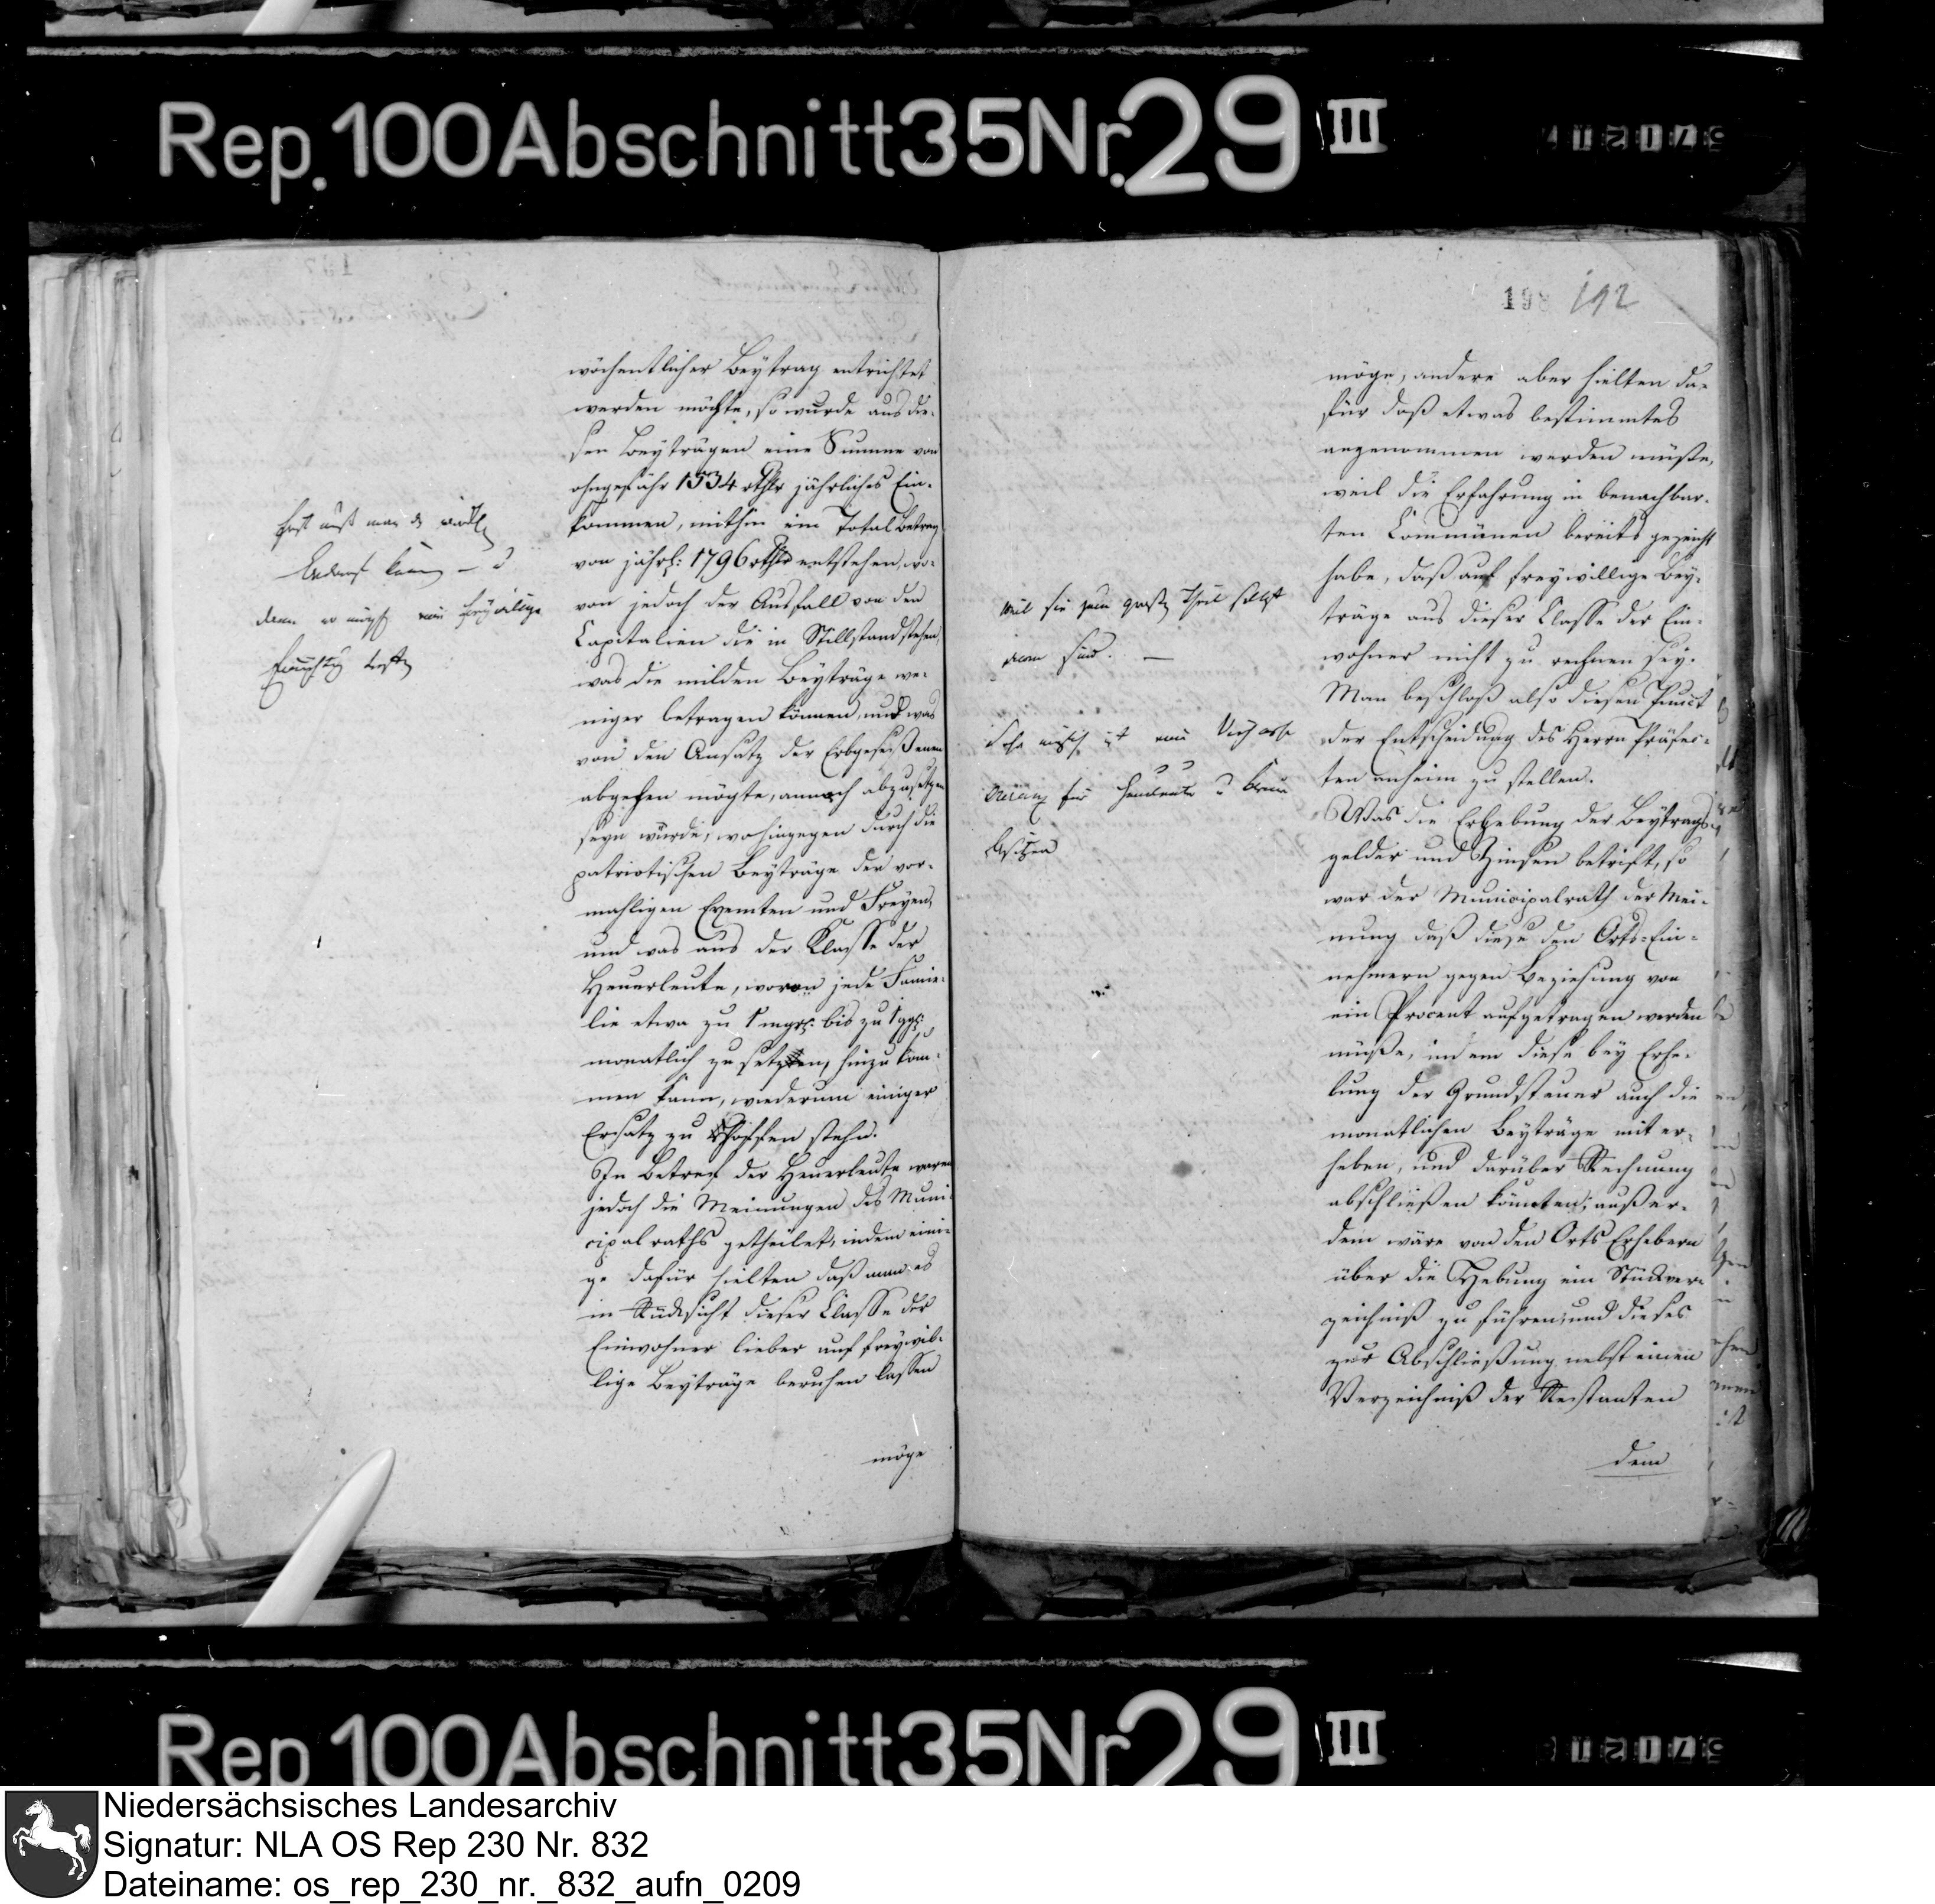 Rep. 100 Abschnitt 35 Nr. 29 III
wöchentlicher Beytrag entrichtet
werden möchte, so wurde aus die-
sen Beyträgen eine Summe von
ohngefähr 1534 rthlr jährliches Ein-
kommen, mithin ein Total Betrag
von jährl: 1796 rthlr entstehen, wo-
von jedoch der Ausfall von den
Capitalien die in Stillstand stehen,
was die milden Beyträge we-
niger betragen können, und was
von den Ansatz der Erbgeseßenen
abgehen mögte, annoch abzusetzen
seyn würde, wohingegen durch die
patriotischen Beyträge der vor-
mahligen Exemten und Freyen,
und was aus der Klasse der
Heuerleute, wovon jede Fami-
lie etwa zu 1 mgr: bis zu 1 ggr:
monatlich zu setzen, hinzu kom-
men kann, wiederum einiger
Ersatz zu hoffen stehn.
In Betref der Heuerleute waren
jedoch die Meinungen des Muni-
cipalraths getheilet, indem eini-
ge dafür hielten daß man es
in Rücksicht dieser Classe der
Einwohner lieber auf freywil-
lige Beyträge beruhen lassen
möge
fast muß man
freywillige
198 192
möge, andere aber hielten da-
für daß etwas bestimmtes
angenommen werden müßte,
weil die Erfahrung in benachbar-
ten Communen bereits gezeigt
habe, daß auf freywillige Bey-
träge aus dieser Classe der Ein-
wohner nicht zu rechnen sey.
Man beschloß also diesen Punct
der Entscheidung des Herrn Präfec-
ten anheim zu stellen.
Was die Erhebung der Beytrags-
gelder und Zinsen betrift, so
war der Municipalrath der Mei-
nung daß diese den Orts-Ein-
nehmern gegen Beziehung von
ein Procent aufgetragen werden
müße, indem diese bey Erhe-
bung der Grundsteuer auch die
monatlichen Beyträge mit er-
heben, und darüber Rechnung
abschließen könnten; außer-
dem wäre von den Orts Erhebern
über die Hebung ein Stückver-
zeichniß zu führen, und dieses
zur Abschließung nebst einen
Verzeichniß der Restanten
dem
weil sie zum großen Theil selbst
arm sind. —
für Heuerleute
Rep 100 Abschnitt 35 Nr 29 III
Niedersächsisches Landesarchiv
Signatur: NLA OS Rep 230 Nr. 832
Dateiname: os_rep_230_nr._832_aufn_0209